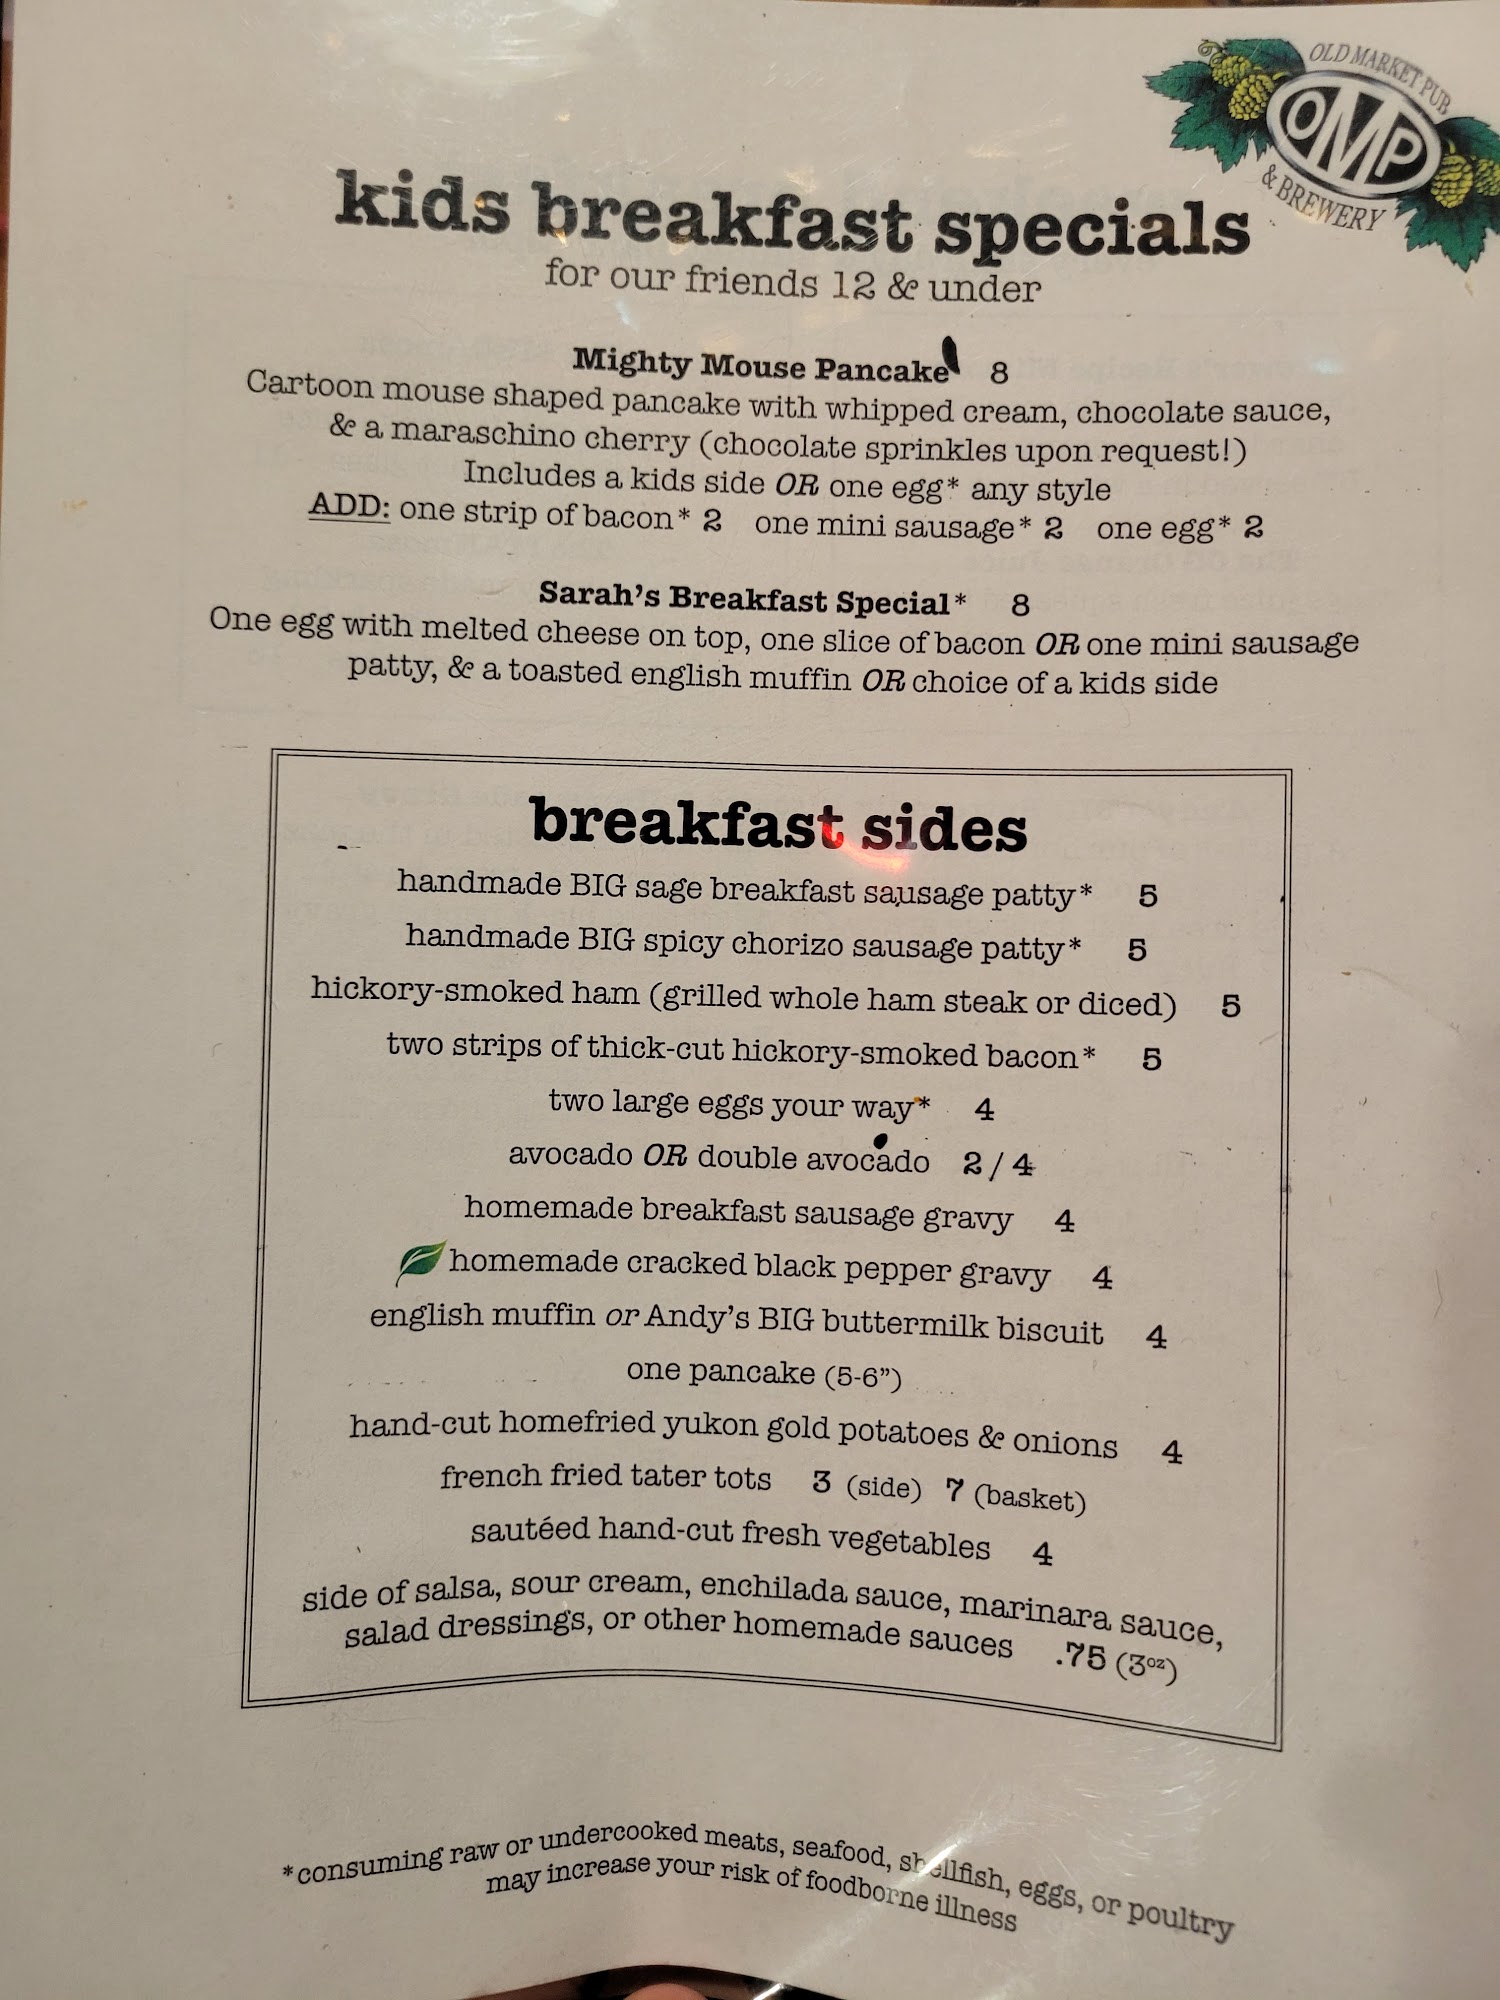 OLD MARKET PUB
OMP
& BREWERY
kids breakfast specials
for our friends 12 & under
Mighty Mouse Pancake 8
Cartoon mouse shaped pancake with whipped cream, chocolate sauce,
& a maraschino cherry (chocolate sprinkles upon request!)
Includes a kids side OR one egg* any style
ADD: one strip of bacon* 2 one mini sausage* 2 one egg* 2
Sarah's Breakfast Special* 8
One egg with melted cheese on top, one slice of bacon OR one mini sausage
patty, & a toasted english muffin OR choice of a kids side
breakfast sides
handmade BIG sage breakfast sausage patty* 5
handmade BIG spicy chorizo sausage patty* 5
hickory-smoked ham (grilled whole ham steak or diced) 5
two strips of thick-cut hickory-smoked bacon* 5
two large eggs your way* 4
avocado OR double avocado 2 / 4
homemade breakfast sausage gravy 4
homemade cracked black pepper gravy 4
english muffin or Andy's BIG buttermilk biscuit 4
one pancake (5-6")
hand-cut homefried yukon gold potatoes & onions 4
french fried tater tots 3 (side) 7 (basket)
sautéed hand-cut fresh vegetables 4
side of salsa, sour cream, enchilada sauce, marinara sauce,
salad dressings, or other homemade sauces .75 (3oz)
*consuming raw or undercooked meats, seafood, shellfish, eggs, or poultry
may increase your risk of foodborne illness